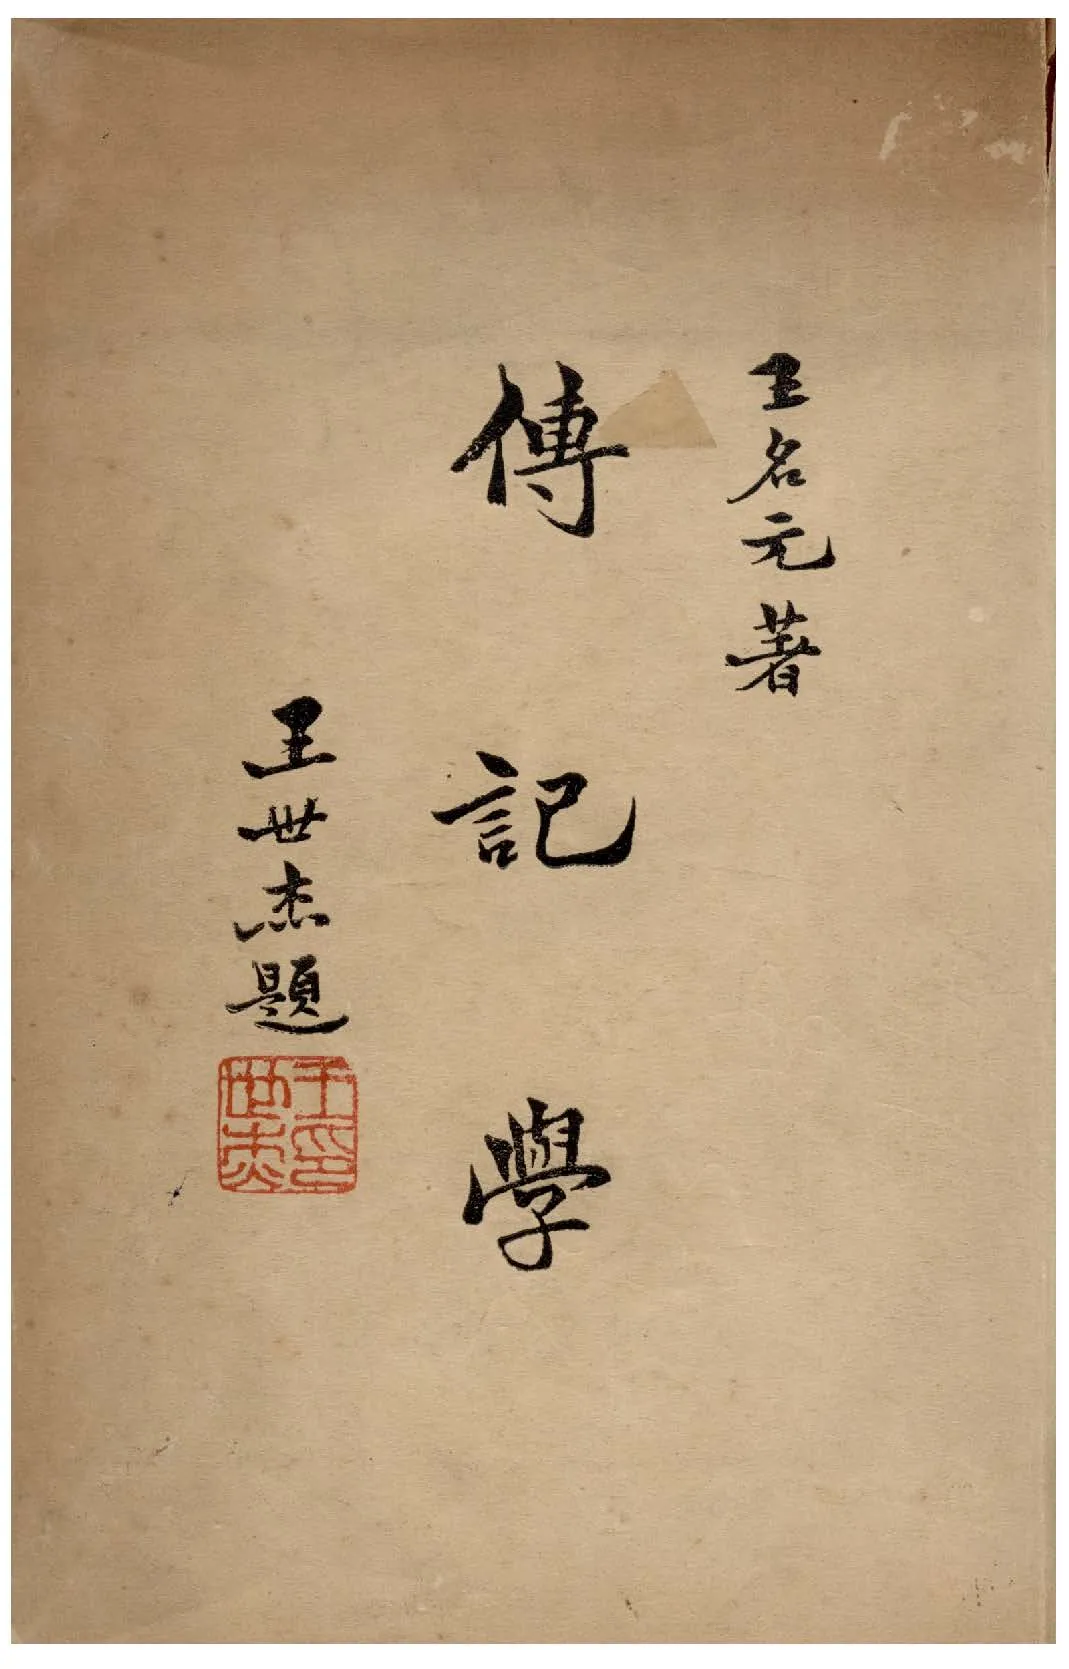 王名元著
傳記學
王世杰題
王世杰印